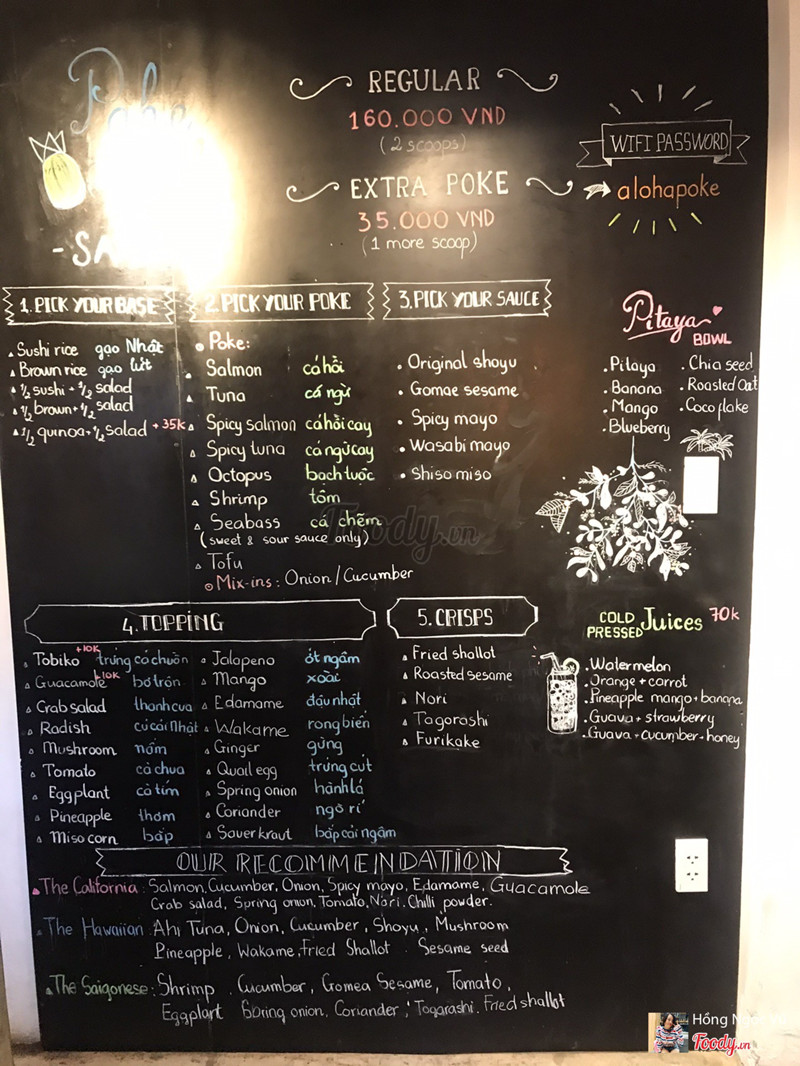 Poke
REGULAR
160.000 VND
(2 scoops)
EXTRA POKE
35.000 VND
(1 more scoop)
WIFI PASSWORD
alohapoke
1. PICK YOUR BASE
Sushi rice gạo Nhật
Brown rice gạo lứt
1/2 sushi + 1/2 salad
1/2 brown + 1/2 salad
1/2 quinoa + 1/2 salad +35k
2. PICK YOUR POKE
Poke:
Salmon cá hồi
Tuna cá ngừ
Spicy salmon cá hồi cay
Spicy tuna cá ngừ cay
Octopus bạch tuộc
Shrimp tôm
Seabass cá chẽm
(sweet & sour sauce only)
Tofu
Mix-ins: Onion / Cucumber
3. PICK YOUR SAUCE
Original shoyu
Gomae sesame
Spicy mayo
Wasabi mayo
Shiso miso
Pitaya
BOWL
Pitaya
Banana
Mango
Blueberry
Chia seed
Roasted Oat
Coco flake
4. TOPPING
Tobiko +10K trứng cá chuồn
Guacamole +10K bơ trộn
Crab salad thanh cua
Radish củ cải Nhật
Mushroom nấm
Tomato cà chua
Eggplant cà tím
Pineapple thơm
Miso corn bắp
Jalapeno ớt ngâm
Mango xoài
Edamame đậu nhật
Wakame rong biển
Ginger gừng
Quail egg trứng cút
Spring onion hành lá
Coriander ngò rí
Sauerkraut bắp cải ngâm
5. CRISPS
Fried shallot
Roasted sesame
Nori
Togorashi
Furikake
COLD PRESSED Juices 70k
Watermelon
Orange + carrot
Pineapple mango + banana
Guava + strawberry
Guava + cucumber + honey
OUR RECOMMENDATION
The California: Salmon, Cucumber, Onion, Spicy mayo, Edamame, Guacamole
Crab salad, Spring onion, Tomato, Nori. Chilli powder.
The Hawaiian: Ahi Tuna, Onion, Cucumber, Shoyu, Mushroom
Pineapple, Wakame, Fried Shallot. Sesame seed
The Saigonese: Shrimp. Cucumber, Gomea Sesame, Tomato,
Eggplant Spring onion, Coriander, Togarashi. Fried shallot
Foody.vn
Hồng
Foody.vn